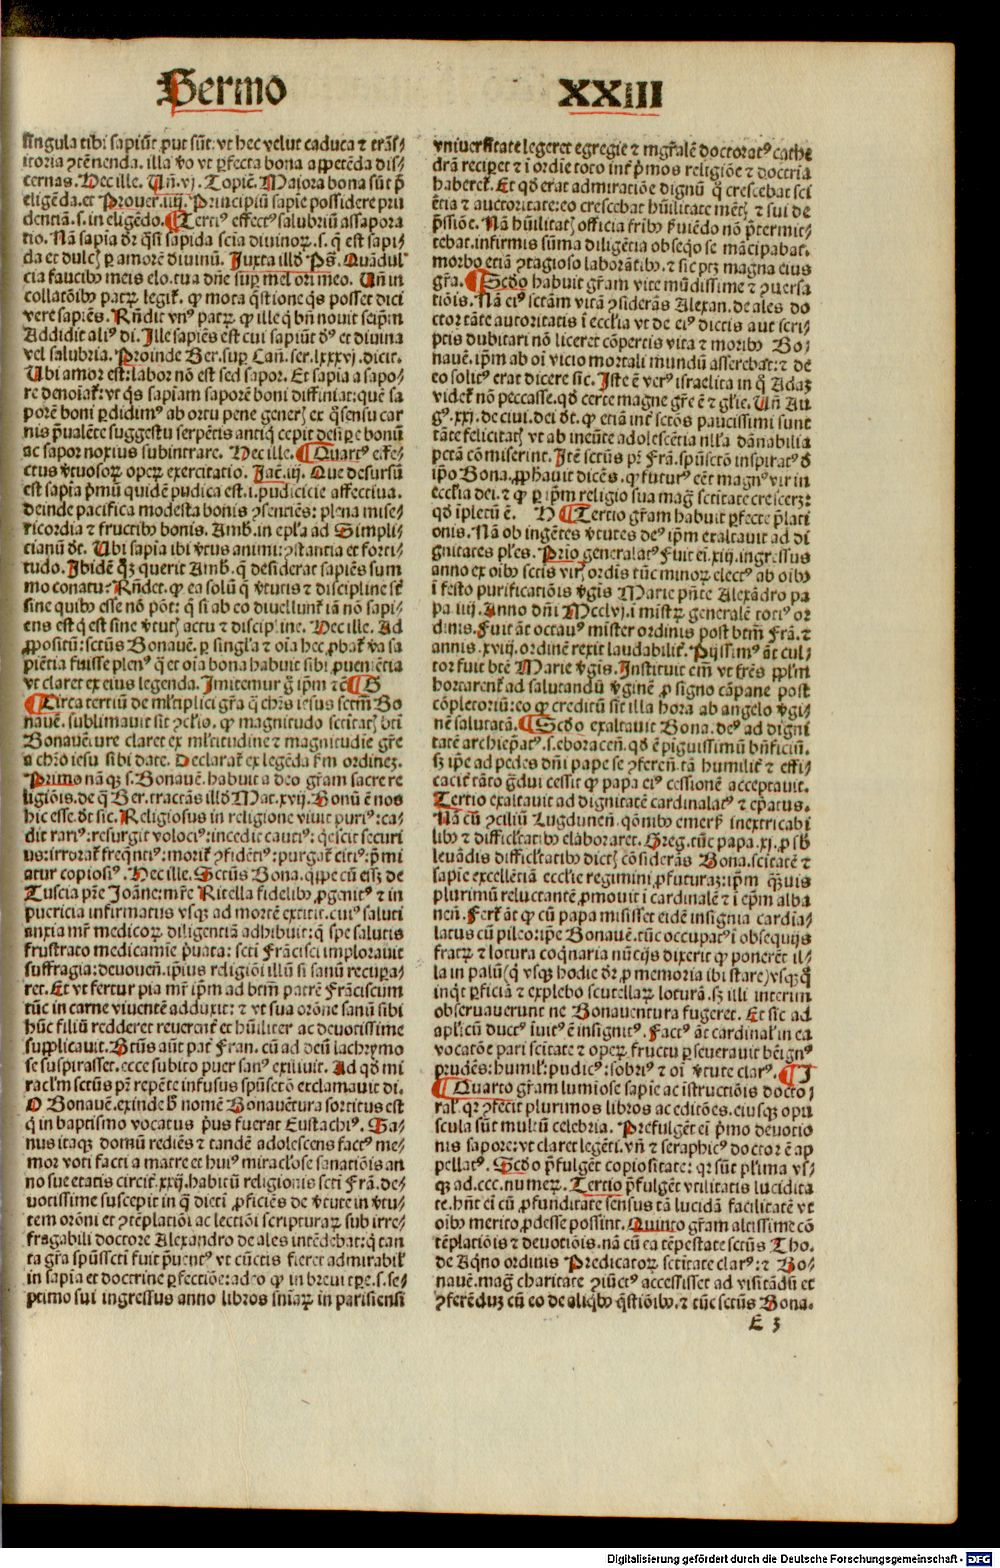 Sermo
XXIII
singula tibi sapiūt ꝓut sūt. vt hec velut caduca ⁊ trās⸗
itoria ꝯtēnenda. illa ꝟo vt ꝑfecta bona appetēda dis⸗
cernas. Hec ille. Uñ.vj. Topic̄. Maiora bona sūt p̄
eligēda. et Prouer.iiij. Principiū sapīe possidere pru
dentiam. s. in eligēdo. ¶ Tertiꝰ effectꝰ salubriū assapora
tio. Nā sapīa dr̄ q̄si sapida scīa diuinoꝝ. s. q̄ est sapi⸗
da et dulcis ꝑ amorē diuinū. Juxta illđ Ps̄. Quā dul
cia faucibꝰ meis elo. tua dn̄e suꝑ mel ori meo. Uñ in
collatōibꝰ patꝝ legit̄. ꝙ mota q̄stione qs̄ posset dici
vere sapiēs. Rn̄dit vnꝰ patꝝ ꝙ ille q̄ bn̄ nouit seip̄m
Addidit aliꝰ di. Ille sapiēs est cui sapiūt dꝰ et diuina
vel salubria. Proinde Ber. suꝑ Cañ. ser. lxxxvj. dicit.
Ubi amor est: labor nō est sed sapor. Et sapīa a sapo⸗
re denoīat̄: vt q̄s sapiam saporē boni diffiniat: quē sa
porē boni ꝑdidimꝰ ab ortu pene generis ex q̄ sensu car
nis p̄ualēte suggestu serpētis antiq̄ cepit desiꝑe bonū
ac sapor noxius subintrare. Hec ille. ¶ Quartꝰ effe⸗
ctus ꝟtuosoꝝ opeꝝ exercitatio. Jac̄. iij. Que desursū
est sapīa p̄mū quidē pudica est. i. pudicicie affectiua.
deinde pacifica modesta bonis ꝯsentiēs: plena mise⸗
ricordia ⁊ fructibꝰ bonis. Amb. in epl̄a ad Simpli⸗
cianū dt̄. Ubi sapīa ibi ꝟtus animi: ꝯstantia et forti⸗
tudo. Ibidē qꝫ querit Amb. q̄ desiderat sapiēs sum
mo conatu? Rn̄det. ꝙ ea solū q̄ ꝟtutis ⁊ discipline st̄
sine quibꝰ esse nō pōt: q̄ si ab eo diuellunt̄ iā nō sapi⸗
ens est q̄ est sine ꝟtutis actu ⁊ discipline. Hec ille. Ad
ꝓpositū: sctūs Bonauē. ꝑ singl̄a ⁊ oīa hec ꝓbat̄ ꝟa sa
piētia fuisse plenꝰ q̄ et oīa bona habuit sibi ꝓueniētia
vt claret ex eius legenda. Imitemur ḡ ip̄m ⁊c̄ ¶ G
¶ Circa tertiū de ml̄tiplici gr̄a q̄ chr̄s iesus sctm̄ Bo
nauē. sublimauit sit ꝯclīo. ꝙ magnitudo sctitatis bti̇̄
Bonauēture claret ex ml̄titudine ⁊ magnitudīe gr̄e
a chr̄o iesu sibi date. Declarat̄ ex legēda fm̄ ordinez.
Primo nāqꝫ s. Bonauē. habuit a deo gr̄am sacre re
ligiōis. de q̄ Ber. tractās illđ Mat. xvij. Bonū ē nos
hic esse. dt̄ sic. Religiosus in religione viuit puriꝰ: ca⸗
dit rariꝰ: resurgit velociꝰ: incedit cautiꝰ: q̄escit securi
us: irrorat̄ freq̄ntiꝰ: morit̄ ꝯfidētiꝰ: purgat̄ citiꝰ: p̄mi
atur copiosiꝰ. Hec ille. Sctūs Bona. qiꝑe cū eēꝫ de
Tuscia pr̄e Joāne: mr̄e Ritella fidelibꝰ ꝓgenitꝰ ⁊ in
puericia infirmatus vsqꝫ ad mortē extitit. cuiꝰ saluti
anxia mr̄ medicoꝝ diligentiā adhibuit: q̄ spe salutis
frustrato medicamīe p̄uata: scti Frācisci implorauit
suffragia: deuouen̄. ip̄ius religiōi illū si sanū recupa⸗
ret. Et vt fertur pia mr̄ ip̄m ad btm̄ patrē Frāciscum
tūc in carne viuentē adduxit: ⁊ vt sua orōne sanū sibi
hūc filiū redderet reuerent̄ et hūiliter ac deuotissime
supplicauit. Btūs aūt pat̄ Fran. cū ad deū lachrymo
se suspirasset. ecce subito puer sanꝰ exiliuit. Ad qđ mi
racl̄m sctūs pr̄ repēte infusus spūsctō exclamauit di.
O Bonauē. exinde b̄ nomē Bonauētura sortitus est
q̄ in baptismo vocatus p̄us fuerat Eustachiꝰ. Sa⸗
nus itaqꝫ domū rediēs ⁊ tandē adolescens factꝰ me⸗
mor voti facti a matre et huiꝰ miracl̄ose sanatiōis an
no sue etatis circit̄ .xxij. habitū religionis scti Frā. de⸗
uotissime suscepit in q̄ dietī ꝓficiēs de ꝟtute in ꝟtu⸗
tem orōni et ꝯtēplatiōi ac lectiōi scripturaꝝ sub irre⸗
fragabili doctore Alexandro de ales intēdebat: q̄ tan
ta gr̄a spūsscti fuit p̄uentꝰ vt cūctis fieret admirabil̄
in sapīa et doctrine ꝑfectiōe: adeo ꝙ in breui tꝑe. s. se⸗
ptimo sui ingressus anno libros sniaꝝ in parisiensi
vniuersitate legeret egregie ⁊ mgr̄alē doctoratꝰ cathe
drā reciꝑet ⁊ ī ordīe toto int̄ p̄mos religiōe ⁊ doctrīa
haberet̄. Et qđ erat admiratiōe dignū q̄ crescebat sci
ētia ⁊ auctoritate: eo crescebat hūilitate mētis ⁊ sui de
p̄ssiōe. Nā hūilitatis officia frībꝰ ꝑuiēdo nō p̄termit⸗
tebat. infirmis sūma diligētia obseqꝰo se mācipabat.
morbo etiā ꝯtagioso laborātibꝰ. ⁊ sic ptꝫ magna eius
gr̄a. ¶ Scđo habuit gr̄am vite mūdissime ⁊ ꝯuersa
tiōis. Nā eiꝰ sctām vitā ꝯsiderās Alexan. de ales do
ctor tāte autoritatis ī eccl̄ia vt de eiꝰ dictis aut scri⸗
ptis dubitari nō liceret cōpertis vita ⁊ moribꝰ Bo⸗
nauē. ip̄m ab oī vicio mortali mundū asserebat: ⁊ de
eo solitꝰ erat dicere sic. Iste ē verꝰ israelita in q̄ Adaꝫ
videt̄ nō peccasse. qđ certe magne gr̄e ē ⁊ glīe. Uñ Au
gꝰ. xxj. de ciui. dei dt̄. ꝙ etiā int̄ sctōs paucissimi sunt
tāte felicitatis vt ab ineūte adolescētia nll̄a dānabilia
pctā cōmiserint. Itē sctūs pr̄ Frā. spūsctō inspiratꝰ đ
ip̄o Bona. ꝓphauit dicēs. ꝙ futurꝰ eēt magnꝰ vir in
eccl̄ia dei. ⁊ ꝙ ꝑ ip̄m religio sua magis sctitate cresceret:
qđ īpletū ē. H ¶ Tertio gr̄am habuit ꝑfecte p̄lati
onis. Nā ob ingētes ꝟtutes deꝰ ip̄m exaltauit ad di
gnitates pl̄es. Prio generalatꝰ. Fuit ei̇̄ .xiij. ingressus
anno ex oībꝰ sctis viris ordīs tūc minoꝝ electꝰ ab oībꝰ
ī festo purificatiōis ꝟgīs Marie pn̄te Alexādro pa
pa iiij. Anno dn̄i Mcclvj. ī mistrꝝ generalē totiꝰ or
dinis. Fuit āt octauꝰ mīster ordinis post btm̄ Frā. ⁊
annis .xviij. ordinē rexit laudabilit̄. Pijssimꝰ āt cul⸗
tor fuit btē Marie ꝟgīs. Instituit em̄ vt fr̄es ppl̄m
hortarent̄ ad salutandū ꝟginē ꝓ signo cāpane post
cōpletoriū: eo ꝙ creditū sit illa hora ab angelo ꝟgi⸗
nē salutatā. ¶ Scđo exaltauit Bona. deꝰ ad digni
tatē archiep̄atꝰ. s. eboraceñ. qđ ē pīguissimū bn̄ficiū.
sꝫ ip̄e ad pedes dn̄i pape se ꝯferēs tā humilit̄ ⁊ effi⸗
cacit̄ tāto ḡdui cessit ꝙ papa eiꝰ cessionē acceptauit.
Tertio exaltauit ad dignitatē cardinalatꝰ ⁊ ep̄atus.
Nā cū ꝯciliū Lugdunen̄. q̄ōnibꝰ emersis inextricabi
libꝰ ⁊ difficl̄tatibꝰ elaboraret. Greg. tūc papa. xj. ꝓ sb̄
leuādis difficl̄tatibꝰ dictis cōsiderās Bona. sctitatē ⁊
sapīe excellētiā eccl̄ie regimini ꝓfuturaꝫ: ip̄m quāuis
plurimū reluctantē ꝓmouit ī cardinalē ⁊ ī ep̄m alba
nen̄. Fert̄ āt ꝙ cū papa misisset eidē insignia cardīa⸗
latus cū pileo: ip̄e Bonauē. tūc occupatꝰ ī obsequijs
fratꝝ ⁊ lotura coqͥnaria nūcijs dixerit ꝙ ponerēt il⸗
la in palū (q̄ vsqꝫ hodie dr̄ ꝓ memoria ibi stare) vsqꝫq̄
inqͥt ꝑficiā ⁊ explebo scutellaꝝ loturā. sꝫ illi interim
obseruauerunt ne Bonauentura fugeret. Et sic ad
apl̄icū ductꝰ īuitꝰ ē insignitꝰ. Factꝰ āt cardinal̄ in ea
vocatōe pari sctitate ⁊ opeꝝ fructu ꝑseuerauit bēignꝰ
prudēs: humil̄: pudicꝰ: sobriꝰ ⁊ oī ꝟtute clarꝰ. ¶ I
¶ Quarto gr̄am lumiose sapīe ac īstructiōis docto⸗
ral̄. qꝛ ꝯfecit plurimos libros ac editōes. eiusqꝫ opu
scula sūt multū celebria. Prefulget ei̇̄ p̄mo deuotio
nis sapore: vt claret legēti. vñ ⁊ seraphicꝰ doctor ē ap
pellatꝰ. Scđo p̄fulgēt copiositate: qꝛ sūt pl̄ima vs⸗
qꝫ ad .ccc. numeꝝ. Tertio p̄fulgēt vtilitatis lucidita
te. hn̄t ei̇̄ cū ꝓfunditate sensus tā lucidā facilitatē vt
oībꝰ merito ꝓdesse possint. Quinto gr̄am altissime cō
tēplatiōis ⁊ deuotiōis. nā cū ea tēpestate sctūs Tho.
de Aqͥno ordinis Predicatoꝝ sctitate clarꝰ: ⁊ Bo⸗
nauē. magis charitate ꝯiūctꝰ accessisset ad visitādū et
ꝯferēduꝫ cū eo de aliqͥbꝰ q̄stiōibꝰ. ⁊ tūc sctūs Bona.
E 3
Digitalisierung gefördert durch die Deutsche Forschungsgemeinschaft - DFG